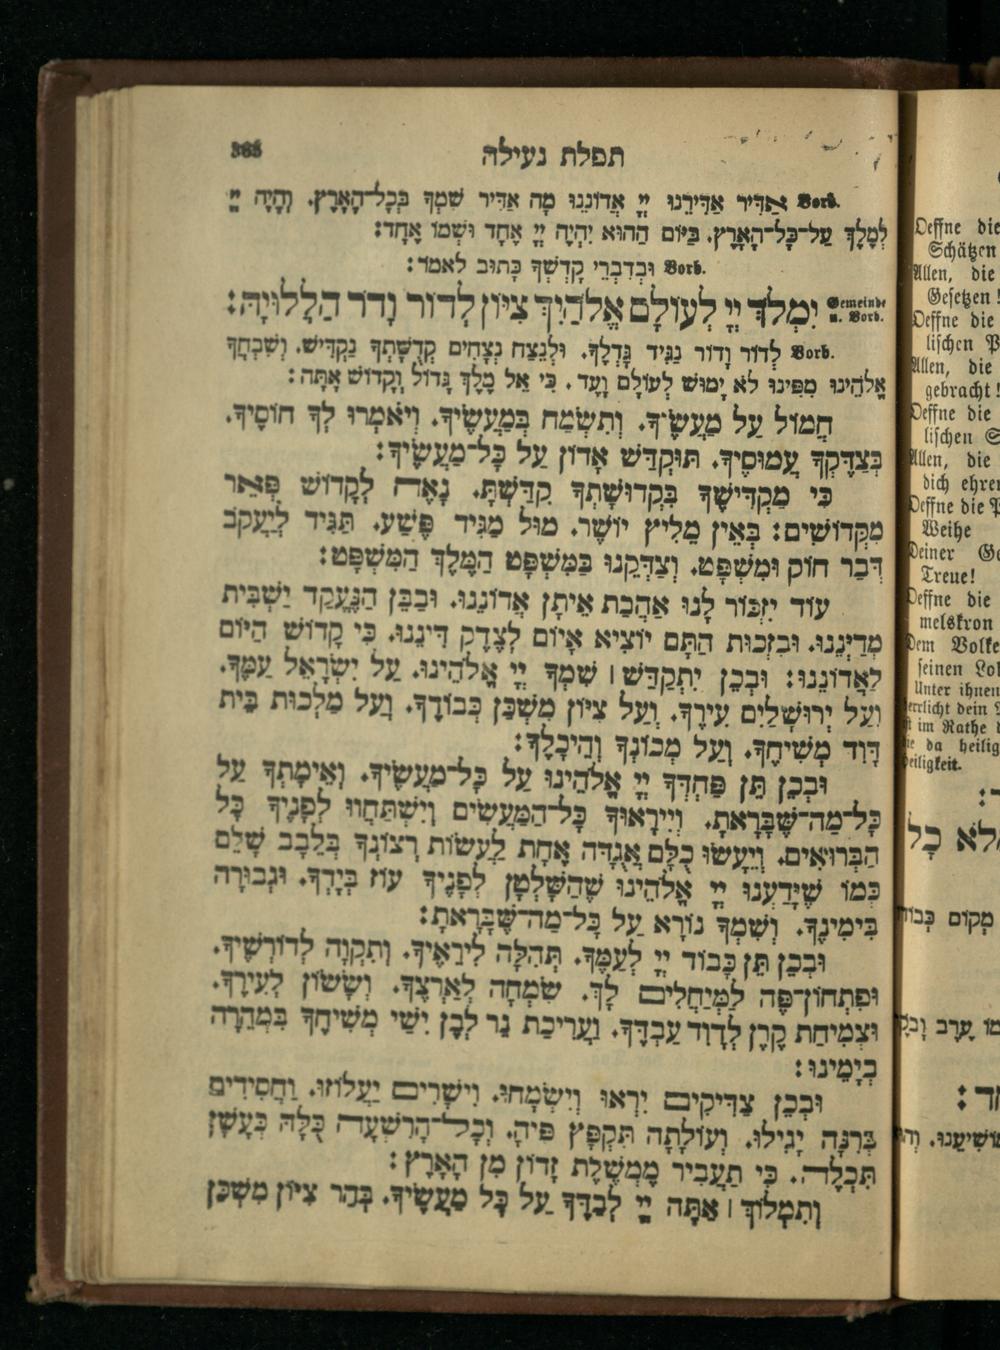 תפלת נעילה
385
Vorb. אַדִּיר אַדִּירֵנוּ יְיָ אֲדוֹנֵנוּ מָה אַדִּיר שִׁמְךָ בְּכָל־הָאָרֶץ. וְהָיָה יְיָ
לְמֶלֶךְ עַל־כָּל־הָאָרֶץ. בַּיּוֹם הַהוּא יִהְיֶה יְיָ אֶחָד וּשְׁמוֹ אֶחָד:
Vorb. וּבְדִבְרֵי קָדְשְׁךָ כָּתוּב לֵאמֹר:
Gemeinde u. Vorb. יִמְלֹךְ יְיָ לְעוֹלָם אֱלֹהַיִךְ צִיּוֹן לְדוֹר וָדוֹר הַלֲלוּיָהּ:
Vorb. לְדוֹר וָדוֹר נַגִּיד גָּדְלֶךָ. וּלְנֵצַח נְצָחִים קְדֻשָּׁתְךָ נַקְדִּישׁ. וְשִׁבְחֲךָ
אֱלֹהֵינוּ מִפִּינוּ לֹא יָמוּשׁ לְעוֹלָם וָעֶד. כִּי אֵל מֶלֶךְ גָּדוֹל וְקָדוֹשׁ אָתָּה:
חֲמוֹל עַל מַעֲשֶׂיךָ. וְתִשְׂמַח בְּמַעֲשֶׂיךָ. וְיֹאמְרוּ לְךָ חוֹסֶיךָ.
בְּצַדֶּקְךָ עֲמוּסֶיךָ. תּוּקְדַּשׁ אָדוֹן עַל כָּל־מַעֲשֶׂיךָ:
כִּי מַקְדִּישֶׁיךָ בִּקְדוּשָּׁתְךָ קִדַּשְׁתָּ. נָאֶה לְקָדוֹשׁ פְּאֵר
מִקְּדוֹשִׁים: בְּאֵין מֵלִיץ יוֹשֶׁר. מוּל מַגִּיד פֶּשַׁע. תַּגִּיד לְיַעֲקֹב
דְּבַר חוֹק וּמִשְׁפָּט. וְצַדְּקֵנוּ בַּמִּשְׁפָּט הַמֶּלֶךְ הַמִּשְׁפָּט:
עוֹד יִזְכּוֹר לָנוּ אַהֲבַת אֵיתָן אֲדוֹנֵנוּ. וּבַבֵּן הַנֶּעֱקַד יַשְׁבִּית
מְדַיְּנֵנוּ. וּבִזְכוּת הַתָּם יוֹצִיא אָיוֹם לְצֶדֶק דִּינֵנוּ. כִּי קָדוֹשׁ הַיּוֹם
לַאֲדוֹנֵנוּ: וּבְכֵן יִתְקַדַּשׁ | שִׁמְךָ יְיָ אֱלֹהֵינוּ. עַל יִשְׂרָאֵל עַמֶּךָ.
וְעַל יְרוּשָׁלַיִם עִירֶךָ. וְעַל צִיּוֹן מִשְׁכַּן כְּבוֹדֶךָ. וְעַל מַלְכוּת בֵּית
דָּוִד מְשִׁיחֶךָ. וְעַל מְכוֹנֶךָ וְהֵיכָלֶךָ:
וּבְכֵן תֵּן פַּחְדְּךָ יְיָ אֱלֹהֵינוּ עַל כָּל־מַעֲשֶׂיךָ. וְאֵימָתְךָ עַל
כָּל־מַה־שֶּׁבָּרָאתָ. וְיִירָאוּךָ כָּל־הַמַּעֲשִׂים וְיִשְׁתַּחֲווּ לְפָנֶיךָ כָּל
הַבְּרוּאִים. וְיֵעָשׂוּ כֻלָּם אֲגֻדָּה אֶחָת לַעֲשׂוֹת רְצוֹנְךָ בְּלֵבָב שָׁלֵם
כְּמוֹ שֶׁיָּדַעְנוּ יְיָ אֱלֹהֵינוּ שֶׁהַשָּׁלְטָן לְפָנֶיךָ עוֹז בְּיָדְךָ. וּגְבוּרָה
בִּימִינֶךָ. וְשִׁמְךָ נוֹרָא עַל כָּל־מַה־שֶּׁבָּרָאתָ:
וּבְכֵן תֵּן כָּבוֹד יְיָ לְעַמֶּךָ. תְּהִלָּה לִירֵאֶיךָ. וְתִקְוָה לְדוֹרְשֶׁיךָ.
וּפִתְחוֹן־פֶּה לַמְיַחֲלִים לָךְ. שִׂמְחָה לְאַרְצֶךָ. וְשָׂשׂוֹן לְעִירֶךָ.
וּצְמִיחַת קֶרֶן לְדָוִד עַבְדֶּךָ. וַעֲרִיכַת נֵר לְבֶן יִשַׁי מְשִׁיחֶךָ בִּמְהֵרָה
בְיָמֵינוּ:
וּבְכֵן צַדִּיקִים יִרְאוּ וְיִשְׂמָחוּ. וִישָׁרִים יַעֲלוֹזוּ. וַחֲסִידִים
בְּרִנָּה יָגִילוּ. וְעוֹלָתָה תִּקְפָּץ פִּיהָ. וְכָל־הָרִשְׁעָה כֻּלָּהּ כְּעָשָׁן
תִּכְלֶה. כִּי תַעֲבִיר מֶמְשֶׁלֶת זָדוֹן מִן הָאָרֶץ:
וְתִמְלוֹךְ | אַתָּה יְיָ לְבַדֶּךָ עַל כָּל מַעֲשֶׂיךָ. בְּהַר צִיּוֹן מִשְׁכַּן
Oeffne die
Schätzen
Allen, die
Gesetzen!
Oeffne die
lischen P
Allen, die
gebracht!
Oeffne die
lischen S
Allen, die
dich ehren
Oeffne die P
Weihe
Deiner Ge
Treue!
Oeffne die
melskron
Dem Volke
seinen Lob
Unter ihnen
errlicht dein
im Rathe
da heilig
eiligkeit.
לֹא כָל
מְקוֹם כְּבוֹד